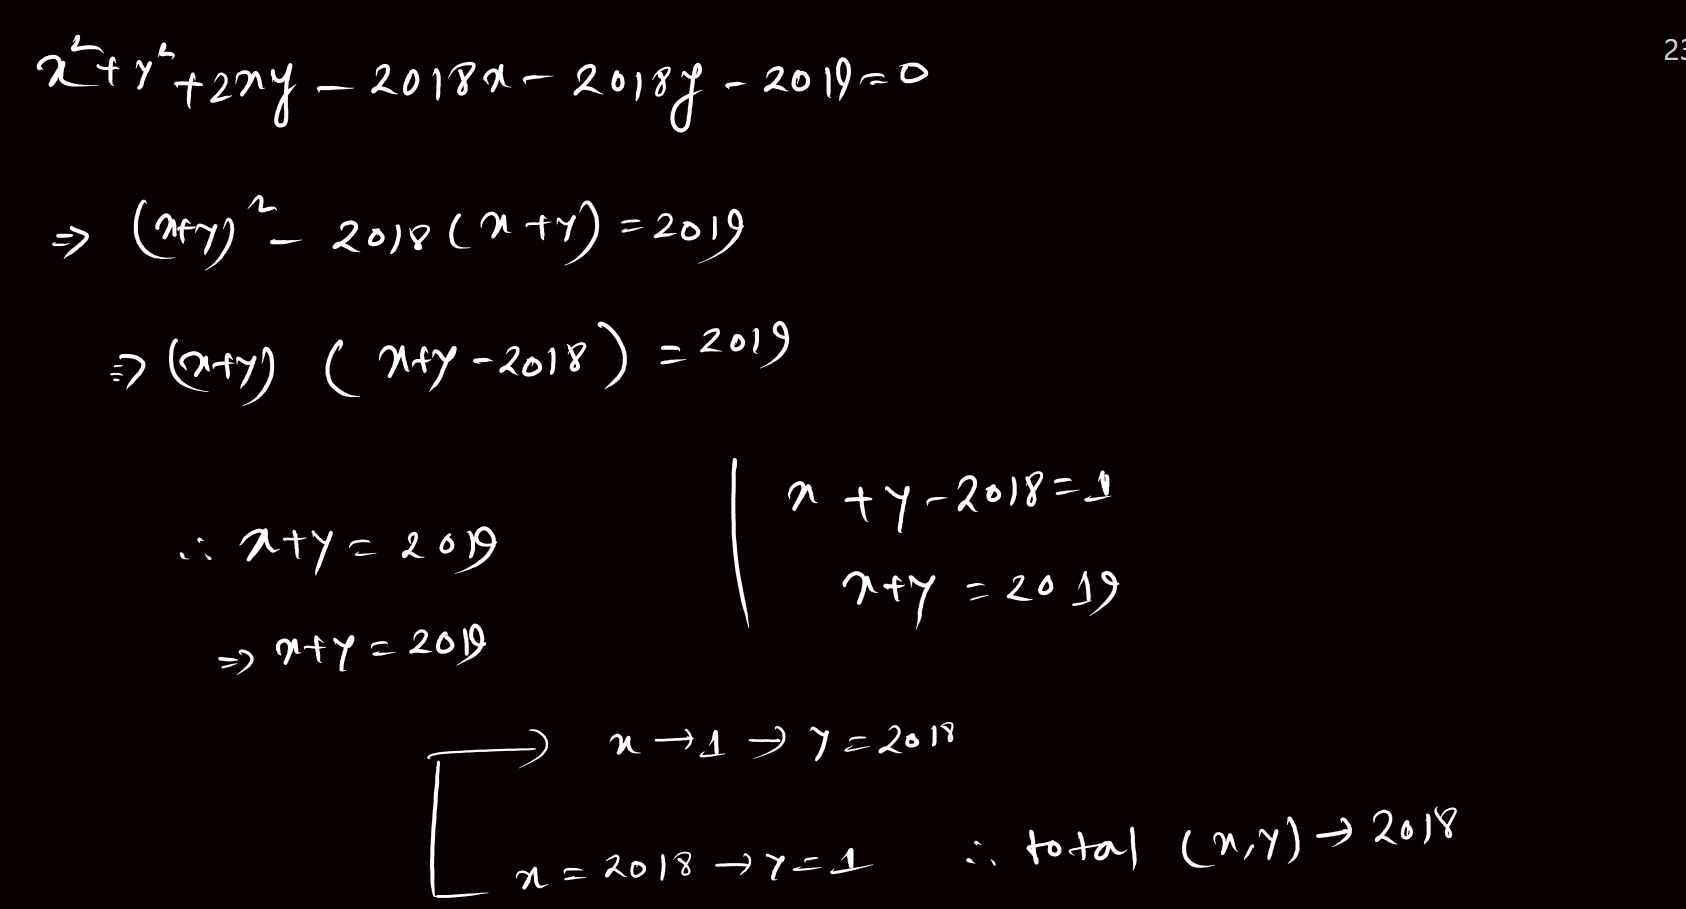 x²+y²+2xy-2018x-2018y-2019=0
23
⇒ (x+y)²-2018(x+y)=2019
⇒ (x+y) (x+y-2018)=2019
x+y-2018=1
∴ x+y=2019
x+y=2019
⇒ x+y=2019
x→1→y=2018
x=2018→y=1
∴ total (x,y)→2018